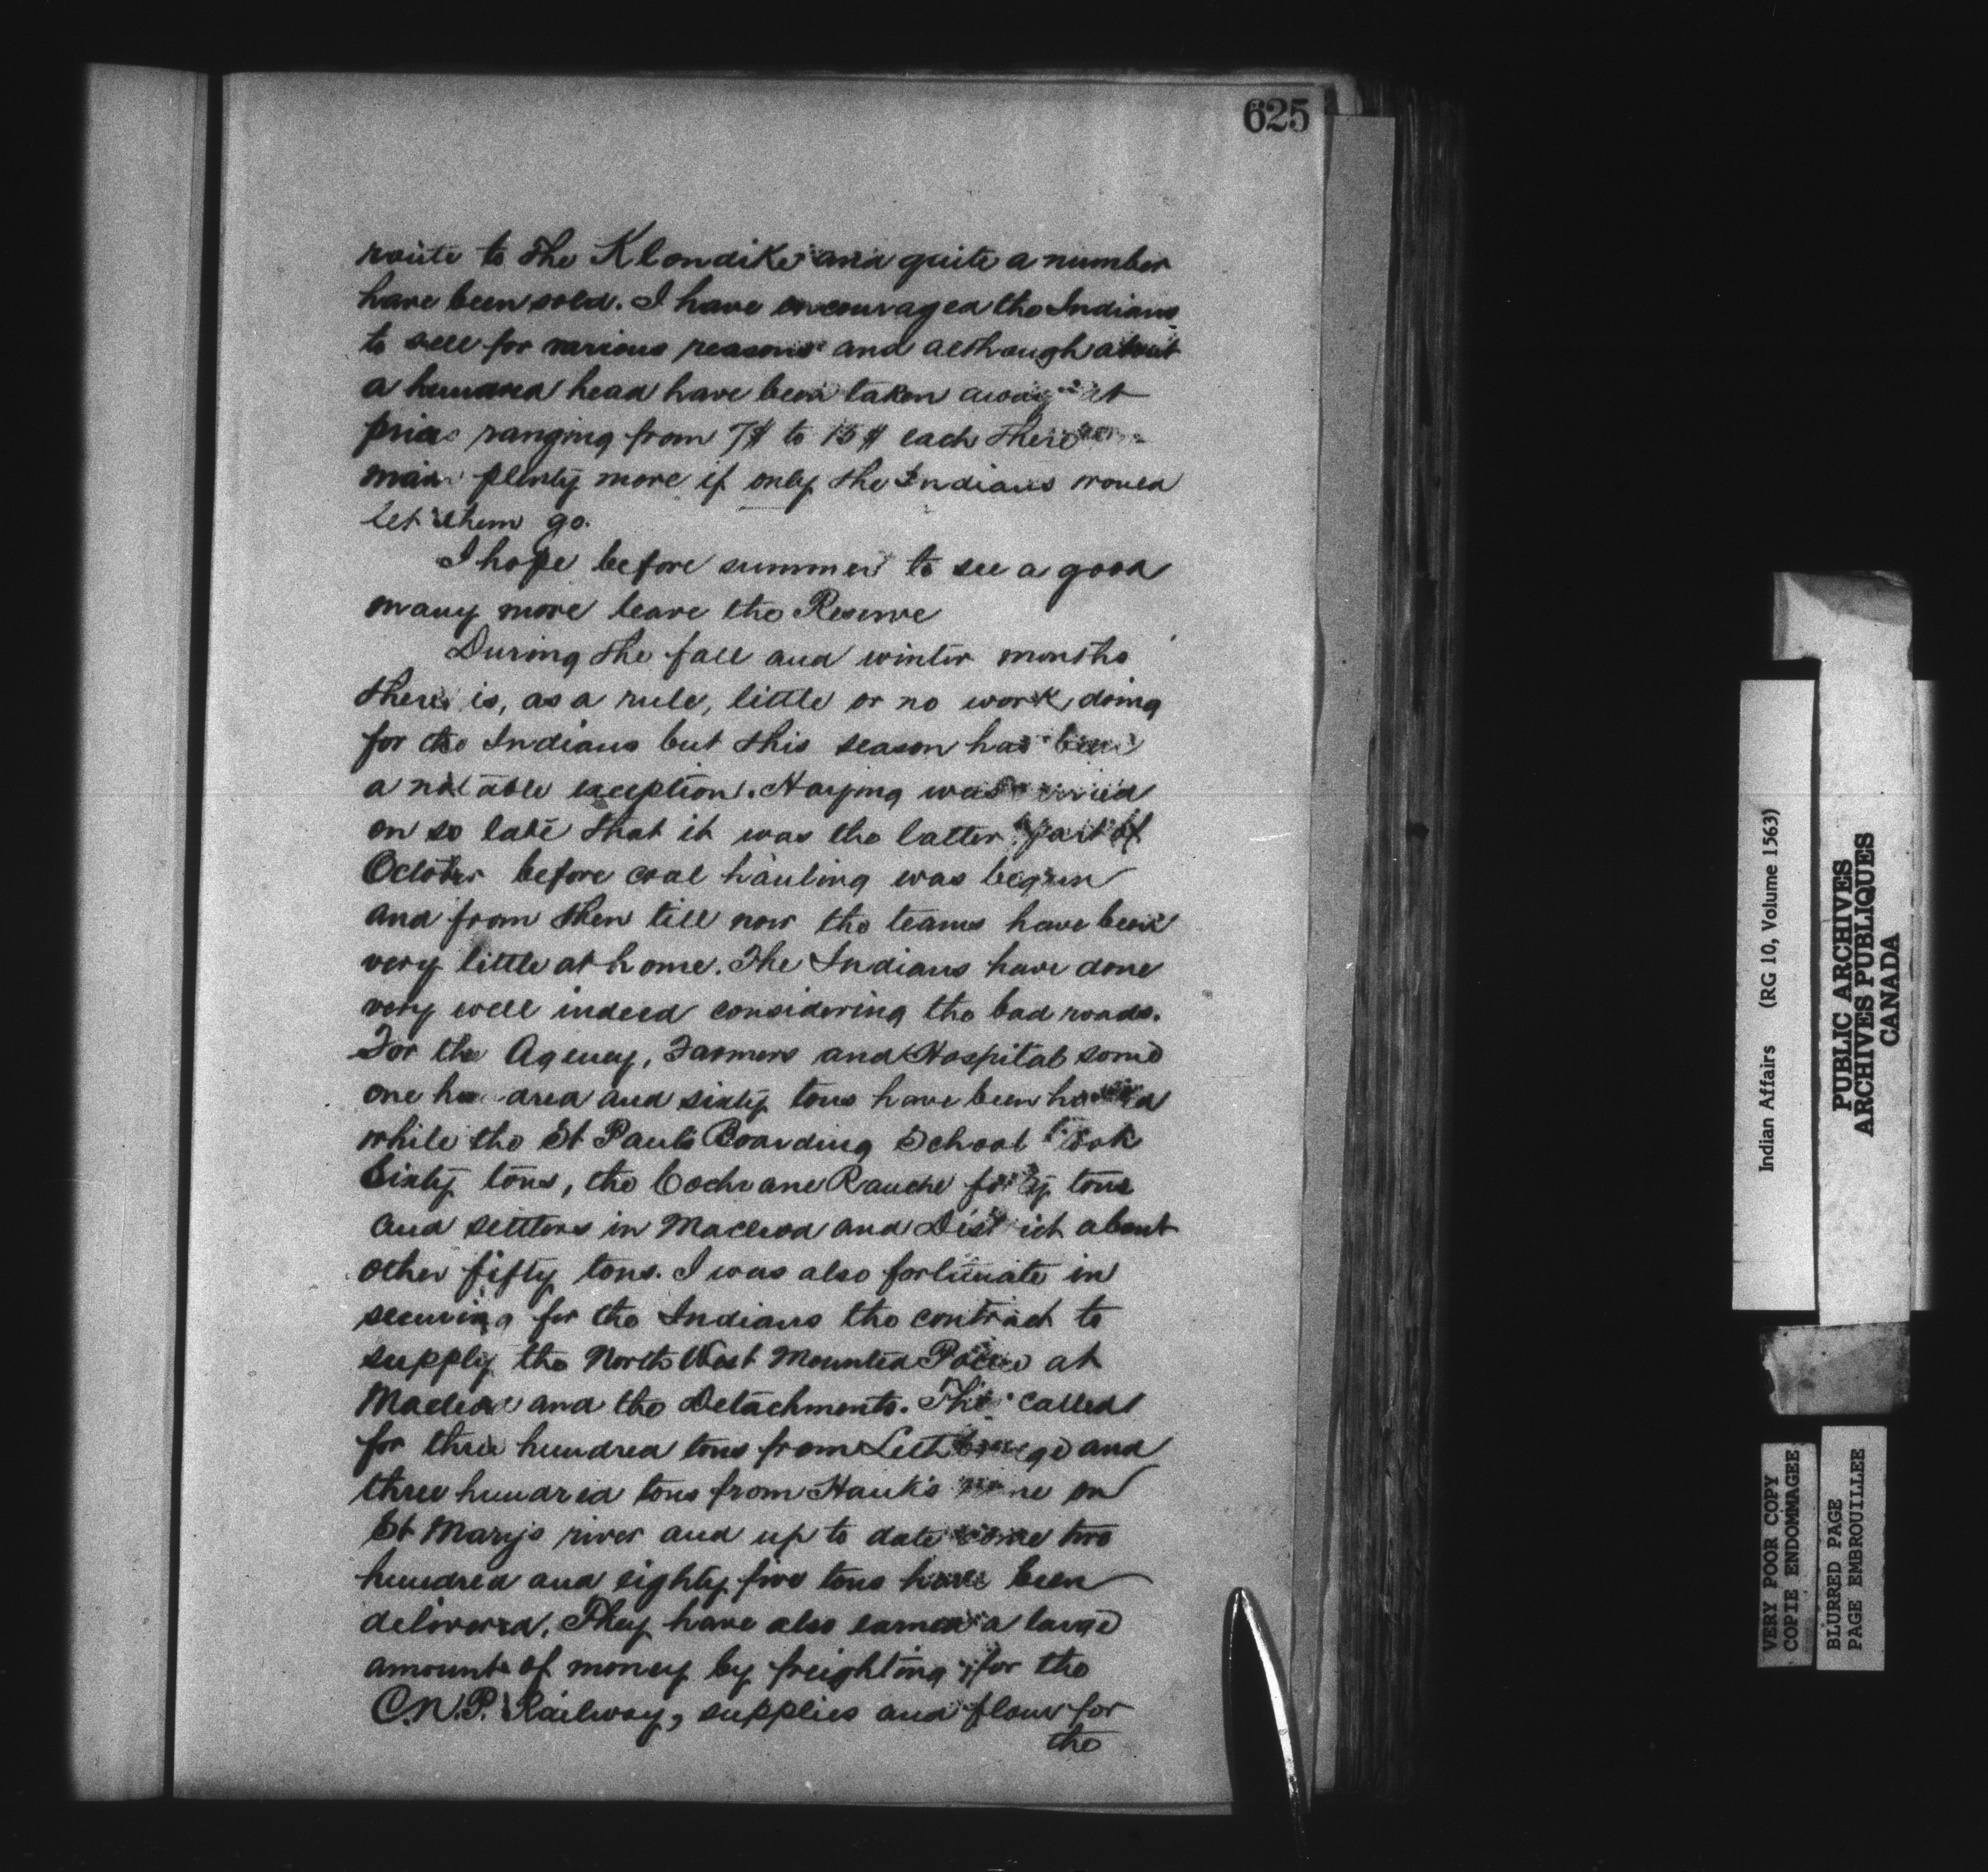 625
route to the Klondike and quite a number
have been sold. I have encouraged the Indians
to sell for various reasons and although about
a hundred head have been taken away at
prices ranging from 7$ to 15$ each there re-
main plenty more if only the Indians would
let them go.
I hope before summer to see a good
many more leave the Reserve
During the fall and winter months
there is, as a rule, little or no work, doing
for the Indians but this season has been
a notable exception. Haying was carried
on so late that it was the latter part of
October before coal hauling was begun
and from then till now the teams have been
very little at home. The Indians have done
very well indeed considering the bad roads.
For the Agency, Farmers and Hospital some
one hundred and sixty tons have been hauled
while the St Paul's Boarding School took
Sixty tons, the Cochrane Ranche forty tons
and settlers in Macleod and District about
other fifty tons. I was also fortunate in
securing for the Indians the contract to
supply the North West Mounted Police at
Macleod and the Detachments. This called
for three hundred tons from Lethbridge and
three hundred tons from Hauk's mine on
St Mary's river and up to date some two
hundred and eighty five tons have been
delivered. They have also earned a large
amount of money by freighting for the
C.N.P. Railway, supplies and flour for
the
Indian Affairs (RG 10, Volume 1563)
PUBLIC ARCHIVES
ARCHIVES PUBLIQUES
CANADA
VERY POOR COPY
COPIE ENDOMMAGEE
BLURRED PAGE
PAGE EMBROUILLEE